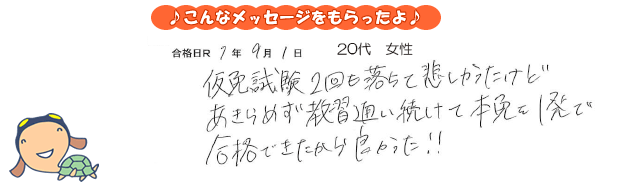 ♪こんなメッセージをもらったよ♪
合格日R 7年 9月 1日 20代 女性
仮免試験2回も落ちて悲しかったけど
あきらめず教習通い続けて本免を1発で
合格できたから良かった!!